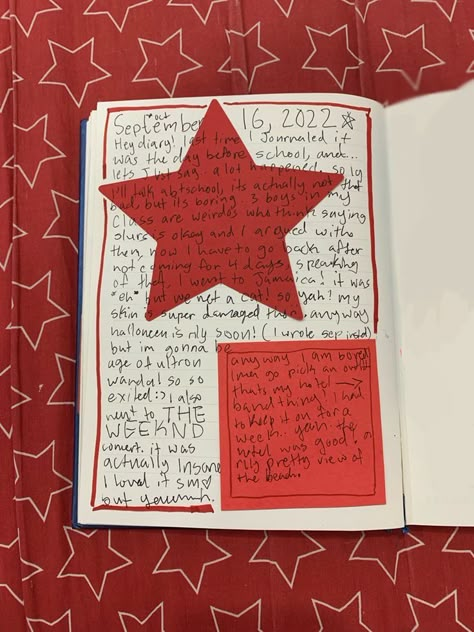 oct
September 16, 2022 ☆
Hey diary! last time I Journaled it
was the day before school, and...
lets just say a lot happened. so ly
I'll talk abt school, its actually not that
bad, but its boring. 3 boys in my
class are weirdos who think saying
slurs is okay and I argued with
then, now I have to go back after
not coming for 4 days, speaking
of that, I went to Jamaica! it was
"eh" but we met a cat! so yah! my
skin is super damaged tho. anyway
halloween is rly soon! (I wrote sep instd)
but im gonna be
age of ultron
wanda! so so
exited :) I also
went to THE
WEEKND
concert. it was
actually Insane
I loved it sm♡
but yeummh.
anyway I am bored
imma go pick an outfit
thats my hotel →
band thing! I had
to keep it on for a
week.. yeah. the
hotel was good! a
rly pretty view of
the beach.